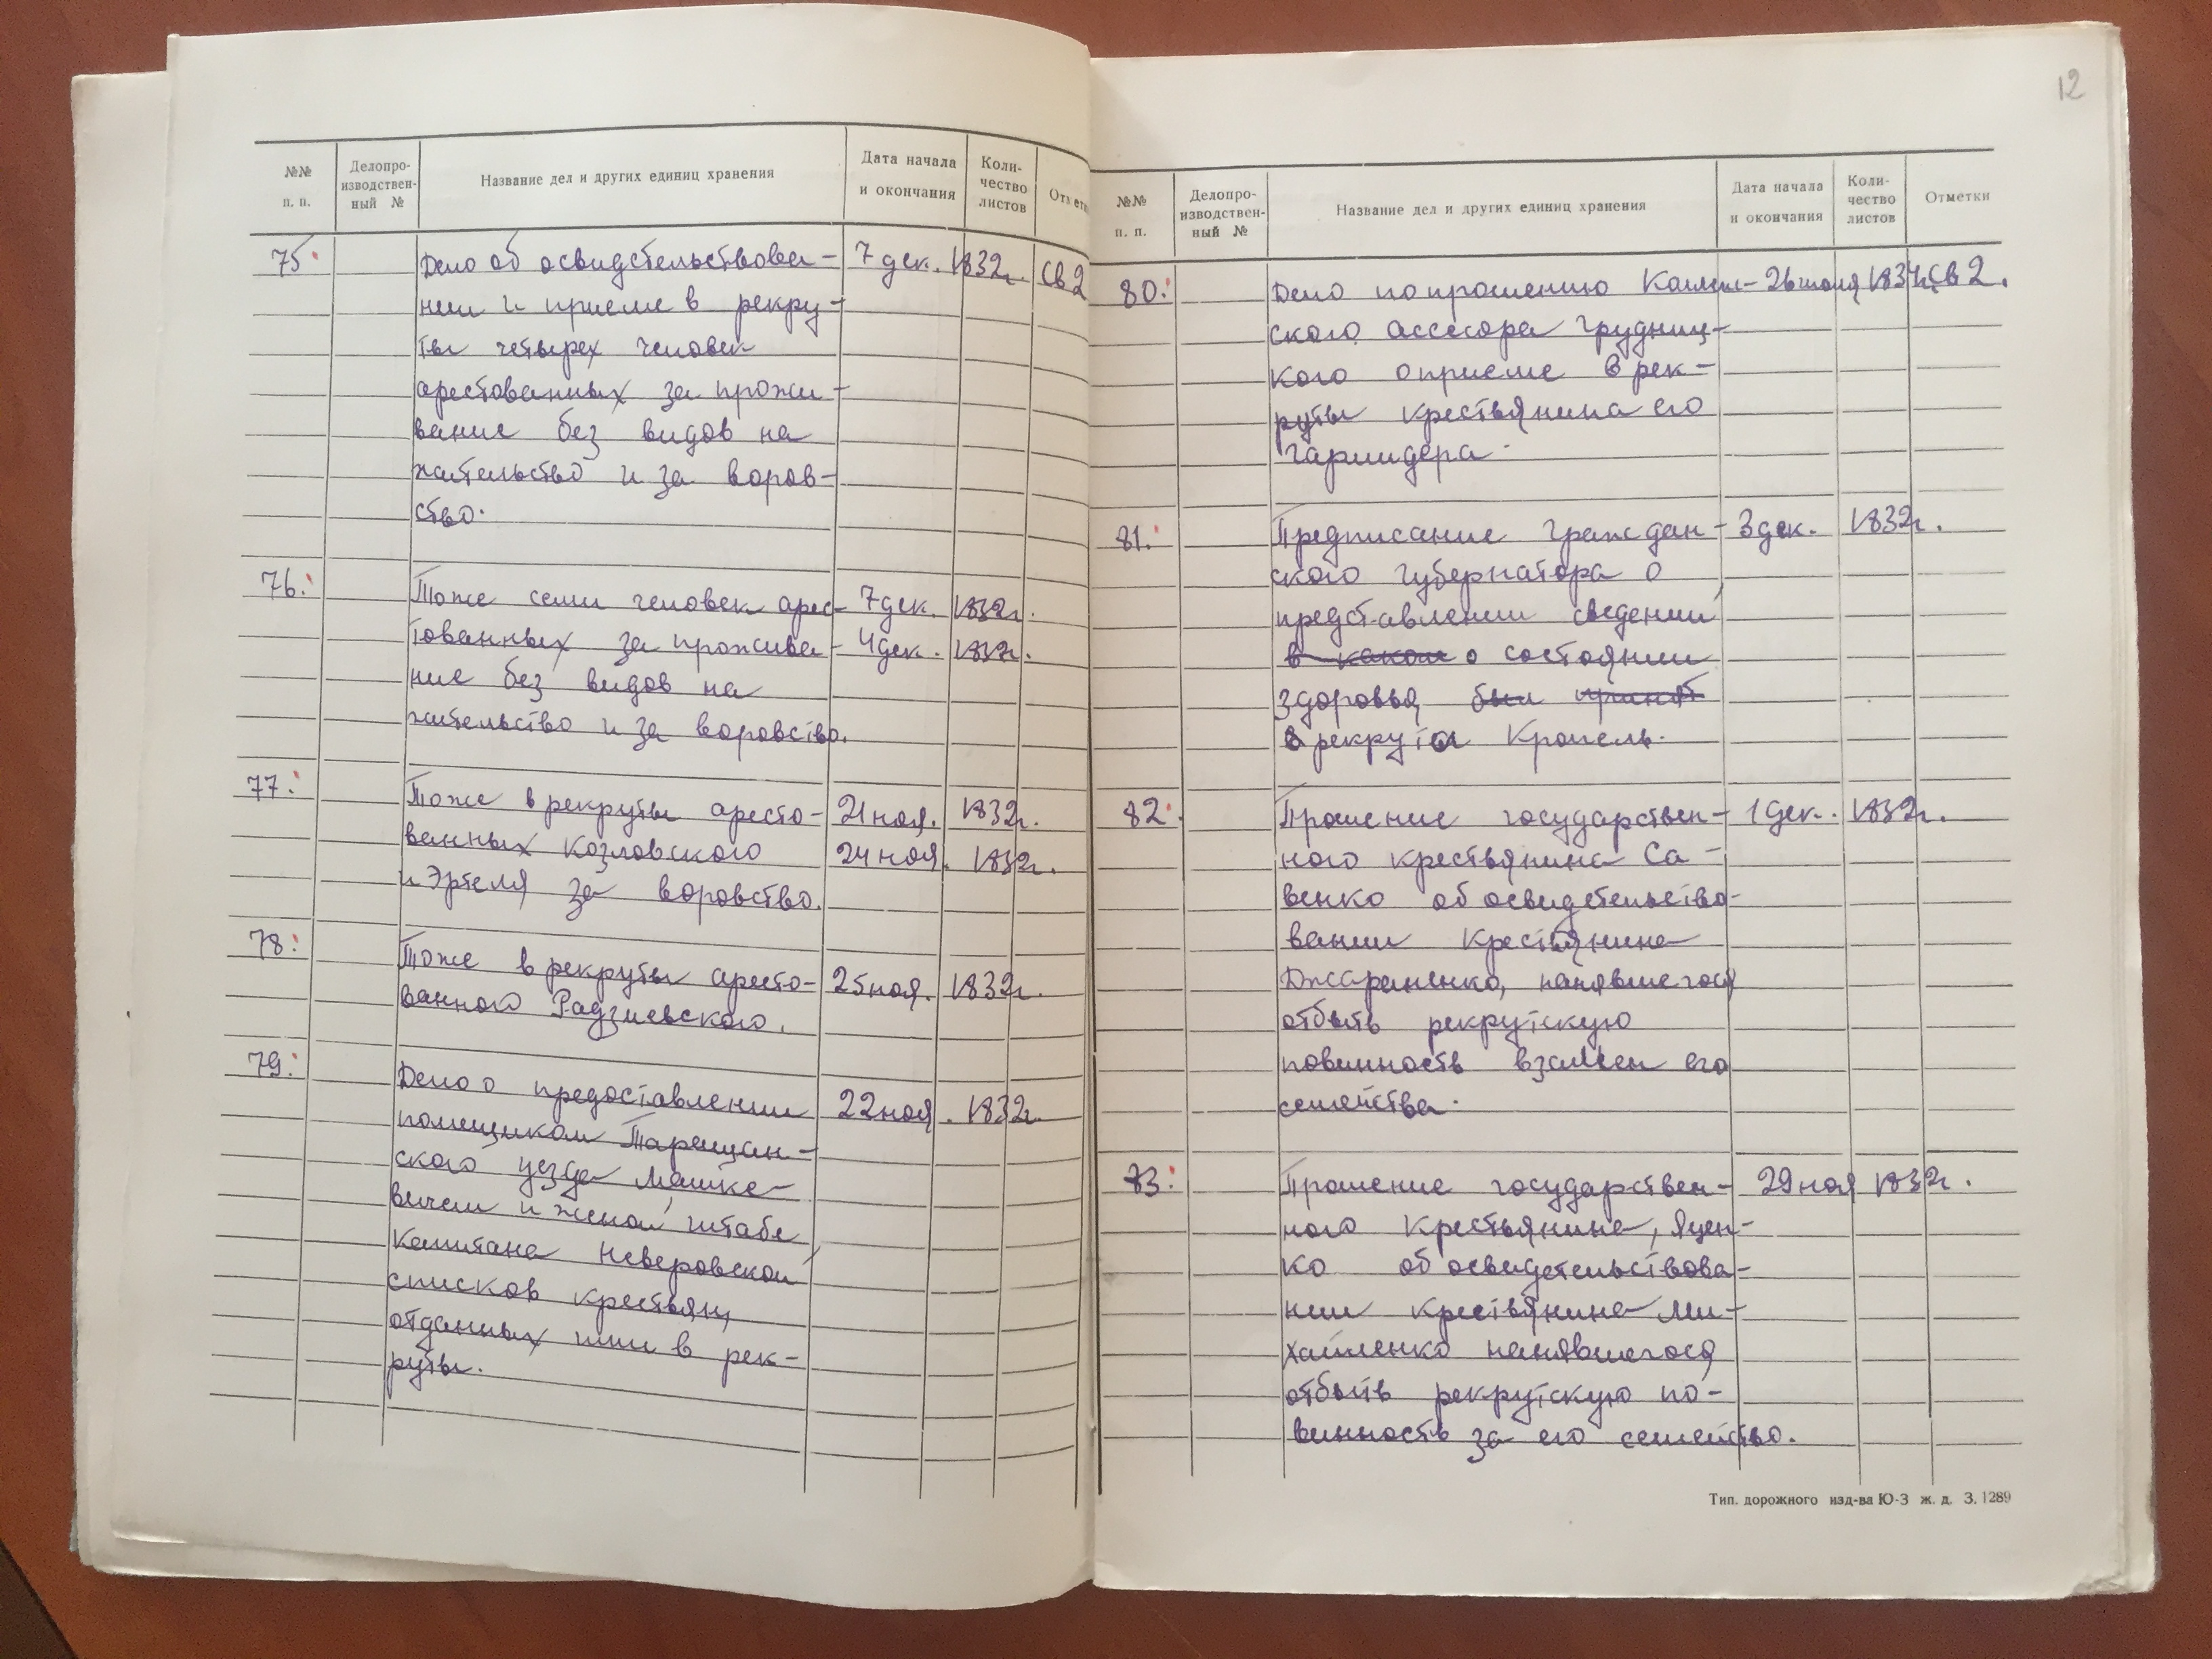 12
№№ п. п.
Делопро-изводствен-ный №
Название дел и других единиц хранения
Дата начала и окончания
Коли-чество листов
Отметк
75. Дело об освидетельствова- 7 дек. 1832г. Св 2
нии и приеме в рекру-
ты четырех человек
арестованных за прожи-
вание без видов на
жительство и за воров-
ство.
76. Тоже семи человек арес- 7 дек. 1832г.
тованных за прожива- 4 дек. 1832г.
ние без видов на
жительство и за воровство.
77. Тоже в рекруты аресто- 21 ноя. 1832г.
ванных Козловского 24 ноя. 1832г.
и Эртеля за воровство.
78. Тоже в рекруты аресто- 25 ноя. 1832г.
ванного Радзиевского.
79. Дело о предоставлении 22 ноя. 1832г.
помещиком Таращан-
ского уезда Машке-
вичем и женой штабс
Капитана Неверовской
списков крестьян,
отданных ими в рек-
руты.
№№ п. п.
Делопро-изводствен-ный №
Название дел и других единиц хранения
Дата начала и окончания
Коли-чество листов
Отметки
80. Дело по прошению 26 Св 2.
ского ассесора Грудниц-
кого о приеме в рек-
руты крестьянина его
81. Предписание Граждан- 3 дек. 1832г.
ского Губернатора о
представлении сведений
в каком о состоянии
здоровья был принят
в рекруты Кропель.
82. Прошение государствен- 1 дек. 1832г.
ного крестьянина Са-
венко об освидетельство-
вании крестьянина
нанявшегося
отбыть рекрутскую
повинность взамен его
семейства.
73. Прошение государствен- 29 ноя 1832г.
ного Крестьянина, Яцен-
ко об освидетельствова-
нии крестьянина Ми-
хайленко нанявшегося
отбыть рекрутскую по-
винность за его семейство.
Тип. дорожного изд-ва Ю-З ж. д. З. 1289